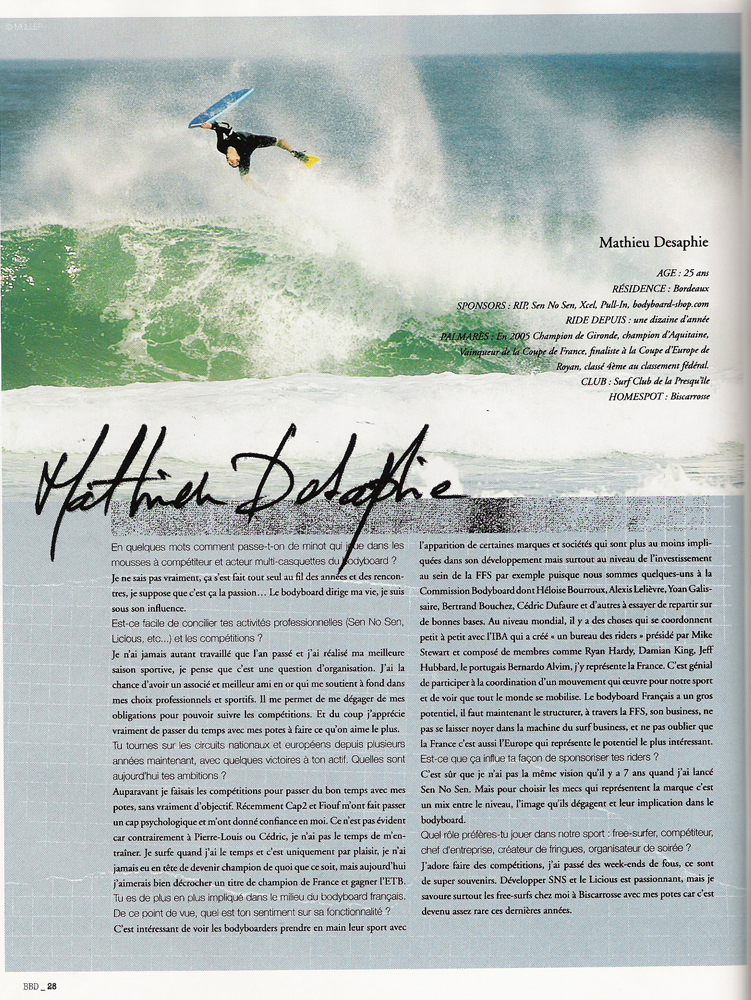 Mathieu Desaphie
AGE : 25 ans
RÉSIDENCE : Bordeaux
SPONSORS : RIP, Sen No Sen, Xcel, Pull-In, bodyboard-shop.com
RIDE DEPUIS : une dizaine d'année
PALMARES : En 2005 Champion de Gironde, champion d'Aquitaine,
Vainqueur de la Coupe de France, finaliste à la Coupe d'Europe de
Royan, classé 4ème au classement fédéral.
CLUB : Surf Club de la Presqu'île
HOMESPOT : Biscarrosse
Mathieu Desaphie
En quelques mots comment passe-t-on de minot qui joue dans les
mousses à compétiteur et acteur multi-casquettes du bodyboard ?
Je ne sais pas vraiment, ça s'est fait tout seul au fil des années et des rencon-
tres, je suppose que c'est ça la passion… Le bodyboard dirige ma vie, je suis
sous son influence.
Est-ce facile de concilier tes activités professionnelles (Sen No Sen,
Licious, etc...) et les compétitions ?
Je n'ai jamais autant travaillé que l'an passé et j'ai réalisé ma meilleure
saison sportive, je pense que c'est une question d'organisation. J'ai la
chance d'avoir un associé et meilleur ami en or qui me soutient à fond dans
mes choix professionnels et sportifs. Il me permet de me dégager de mes
obligations pour pouvoir suivre les compétitions. Et du coup j'apprécie
vraiment de passer du temps avec mes potes à faire ce qu'on aime le plus.
Tu tournes sur les circuits nationaux et européens depuis plusieurs
années maintenant, avec quelques victoires à ton actif. Quelles sont
aujourd'hui tes ambitions ?
Auparavant je faisais les compétitions pour passer du bon temps avec mes
potes, sans vraiment d'objectif. Récemment Cap2 et Fiouf m'ont fait passer
un cap psychologique et m'ont donné confiance en moi. Ce n'est pas évident
car contrairement à Pierre-Louis ou Cédric, je n'ai pas le temps de m'en-
traîner. Je surfe quand j'ai le temps et c'est uniquement par plaisir, je n'ai
jamais eu en tête de devenir champion de quoi que ce soit, mais aujourd'hui
j'aimerais bien décrocher un titre de champion de France et gagner l'ETB.
Tu es de plus en plus impliqué dans le milieu du bodyboard français.
De ce point de vue, quel est ton sentiment sur sa fonctionnalité ?
C'est intéressant de voir les bodyboarders prendre en main leur sport avec
l'apparition de certaines marques et sociétés qui sont plus au moins impli-
quées dans son développement mais surtout au niveau de l'investissement
au sein de la FFS par exemple puisque nous sommes quelques-uns à la
Commission Bodyboard dont Héloïse Bourroux, Alexis Lelièvre, Yoan Galis-
saire, Bertrand Bouchez, Cédric Dufaure et d'autres à essayer de repartir sur
de bonnes bases. Au niveau mondial, il y a des choses qui se coordonnent
petit à petit avec l'IBA qui a créé « un bureau des riders » présidé par Mike
Stewart et composé de membres comme Ryan Hardy, Damian King, Jeff
Hubbard, le portugais Bernardo Alvim, j'y représente la France. C'est génial
de participer à la coordination d'un mouvement qui œuvre pour notre sport
et de voir que tout le monde se mobilise. Le bodyboard Français a un gros
potentiel, il faut maintenant le structurer, à travers la FFS, son business, ne
pas se laisser noyer dans la machine du surf business, et ne pas oublier que
la France c'est aussi l'Europe qui représente le potentiel le plus intéressant.
Est-ce que ça influe ta façon de sponsoriser tes riders ?
C'est sûr que je n'ai pas la même vision qu'il y a 7 ans quand j'ai lancé
Sen No Sen. Mais pour choisir les mecs qui représentent la marque c'est
un mix entre le niveau, l'image qu'ils dégagent et leur implication dans le
bodyboard.
Quel rôle préfères-tu jouer dans notre sport : free-surfer, compétiteur,
chef d'entreprise, créateur de fringues, organisateur de soirée ?
J'adore faire des compétitions, j'ai passé des week-ends de fous, ce sont
de super souvenirs. Développer SNS et le Licious est passionnant, mais je
savoure surtout les free-surfs chez moi à Biscarrosse avec mes potes car c'est
devenu assez rare ces dernières années.
BBD _ 28